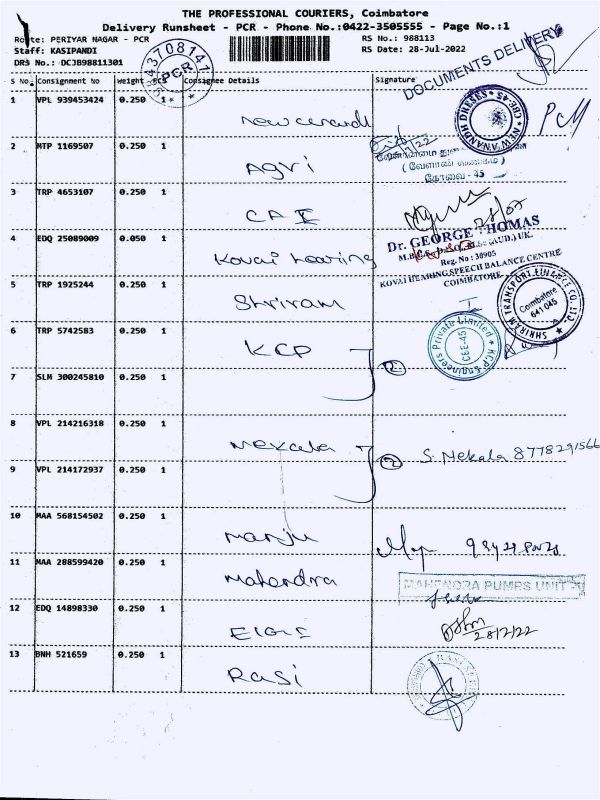 THE PROFESSIONAL COURIERS, Coimbatore
Delivery Runsheet - PCR - Phone No.:0422-3505555 - Page No.:1
Route: PERIYAR NAGAR - PCR
RS No.: 988113
Staff: KASIPANDI
RS Date: 28-Jul-2022
DRS No.: DCJB98811301
PCR
DOCUMENTS DELIVERY
S No. Consignment No Weight Pcs Consignee Details Signature
1 VPL 939453424 0.250 1
NEW ANANDH DRESES CBE-45
PCM
2 MTP 1169507 0.250 1 AGri
(வேளாண்
கோவை - 45
3 TRP 4653107 0.250 1
28/07
4 EDQ 25089009 0.050 1 Kovai hearing
Dr. GEORGE THOMAS
Reg. No : 30905
KOVAI HEARING, SPEECH BALANCE CENTRE
COIMBATORE
5 TRP 1925244 0.250 1 Shriram
SHRIRAM TRANSPORT FINANCE CO. LTD.
Coimbatore
641 045
6 TRP 5742583 0.250 1 KCP
KCP Engineers Private Limited
CBE-45
2
7 SLM 300245810 0.250 1
8 VPL 214216318 0.250 1 Mekala
2 S. Mekala 8778291566
9 VPL 214172937 0.250 1
10 MAA 568154502 0.250 1 Manju
11 MAA 288599420 0.250 1 Mahendra
MAHENDRA PUMPS UNIT
12 EDQ 14898330 0.250 1 ElGi
28/7/22
13 BNH 521659 0.250 1 Rasi